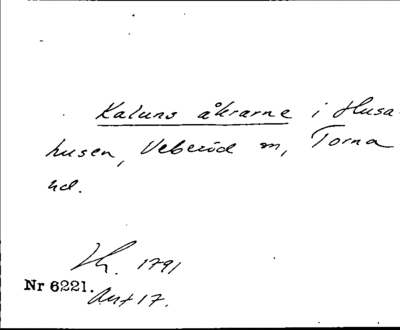 Kaluns åkrarne i Husa-
husen, Veberöd m, Torna
hd.
Lh. 1791
Nr 6221.
Akt 17.